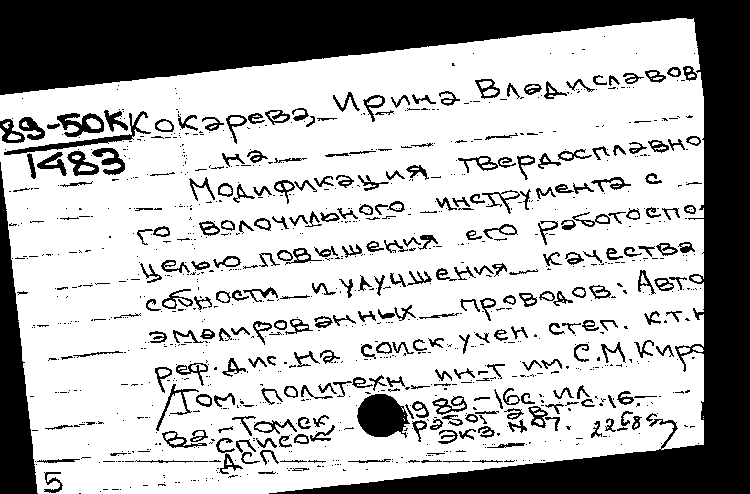 89-50К Кокарева, Ирина Владиславов-
1483 на
Модификация твердосплавно-
го волочильного инструмента с
целью повышения его работоспо-
собности и улучшения качества
эмалированных проводов: Авто-
реф. дис. на соиск. учен. степ. к.т.н
/Том. политехн. ин-т им. С.М. Киро-
ва.-Томск, 1989-16с. ил.
список работ авт: с.16.
ДСП Экз. №
5